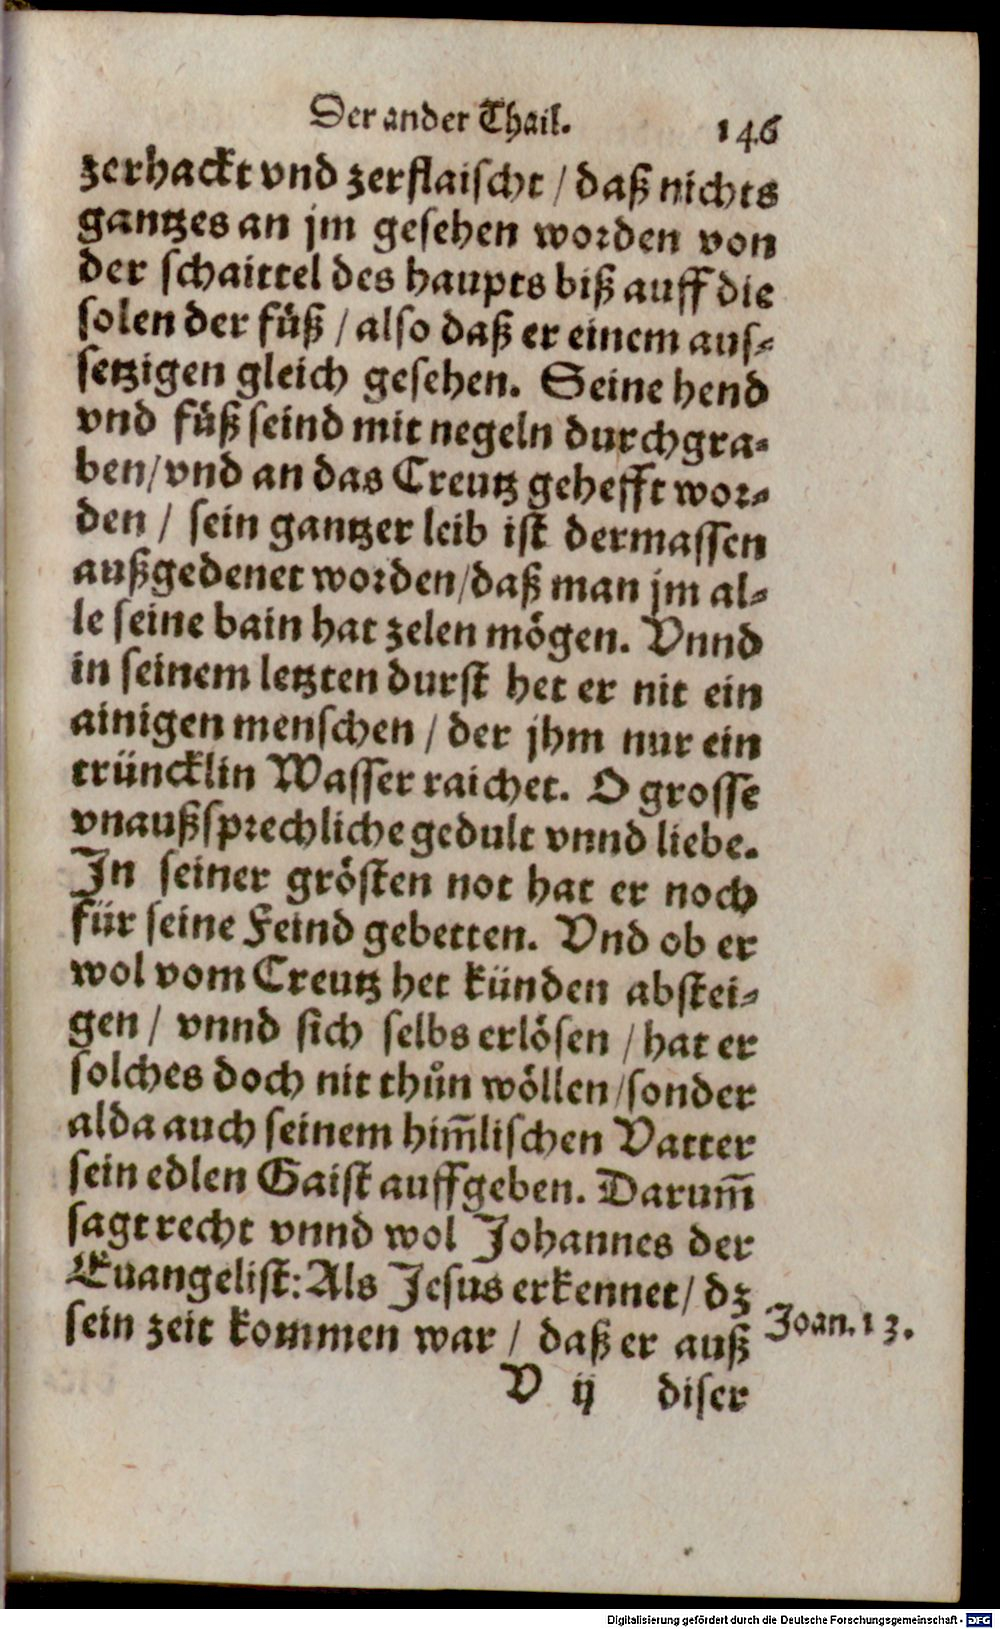 Der ander Thail. 146
zerhackt vnd zerflaischt / daß nichts
gantzes an jm gesehen worden von
der schaittel des haupts biß auff die
solen der füß / also daß er einem aus⸗
setzigen gleich gesehen. Seine hend
vnd füß seind mit negeln durchgra⸗
ben / vnd an das Creutz gehefft wor⸗
den / sein gantzer leib ist dermassen
außgedenet worden / daß man jm al⸗
le seine bain hat zelen mögen. Vnnd
in seinem letzten durst het er nit ein
ainigen menschen / der jhm nur ein
trüncklin Wasser raichet. O grosse
vnaußsprechliche gedult vnnd liebe.
In seiner grösten not hat er noch
für seine Feind gebetten. Vnd ob er
wol vom Creutz het künden abstei⸗
gen / vnnd sich selbs erlösen / hat er
solches doch nit thůn wöllen / sonder
alda auch seinem him̄lischen Vatter
sein edlen Gaist auffgeben. Darum̄
sagt recht vnnd wol Johannes der
Euangelist: Als Jesus erkennet / dz
sein zeit kommen war / daß er auß
Joan. 13.
V ij diser
Digitalisierung gefördert durch die Deutsche Forschungsgemeinschaft - DFG